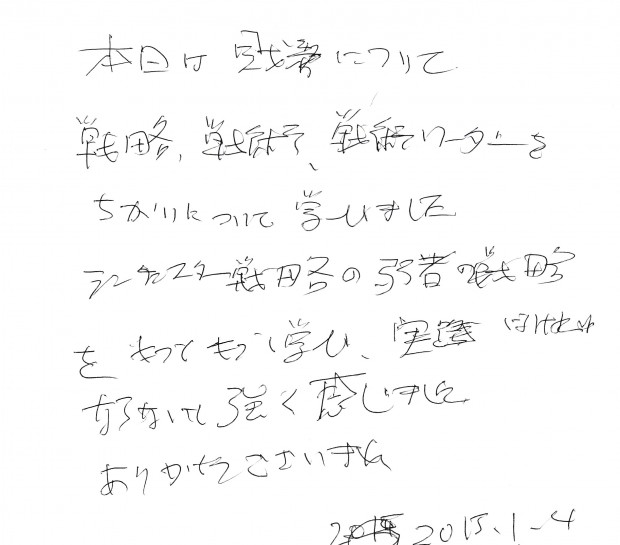 本日は について
戦略、戦術、戦術リーダーを
ちがいについて学びました
ランチェスター戦略の弱者の戦略
をもってもっと学び、実践
ならないと強く感じました
ありがとうございます
2015.1.4